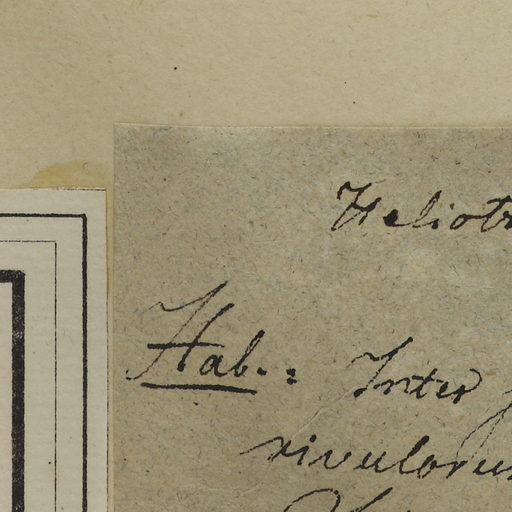 Heliotr
Hab.: Inter
rivuloru